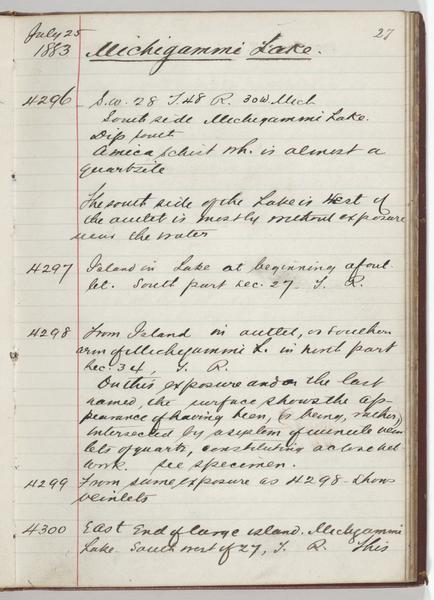 July 25
1883
27
Michigammi Lake.
4296 S.W. 28 T.48 R. 30W Mich
South side Michegammi Lake.
Dip South
A mica schist wh. is almost a
quartzite
The south side of the Lake is West of
the outlet is mostly without exposure
near the water
4297 Island in Lake at beginning of out-
let. South part Sec. 27 T. R.
4298 From Island in outlet, or Southern
arm of Michegammi L. in north part
Sec. 34, T. R.
On this exposure and on the last
named, the surface shows the ap-
pearance of having been, (& being, rather)
intersected by a system of minute vein
lets of quartz, constituting a close net
work. See specimen.
4299 From same exposure as 4298 - shows
veinlets
4300 East End of large island. Michegammi
Lake. South west of 27, T. R. This